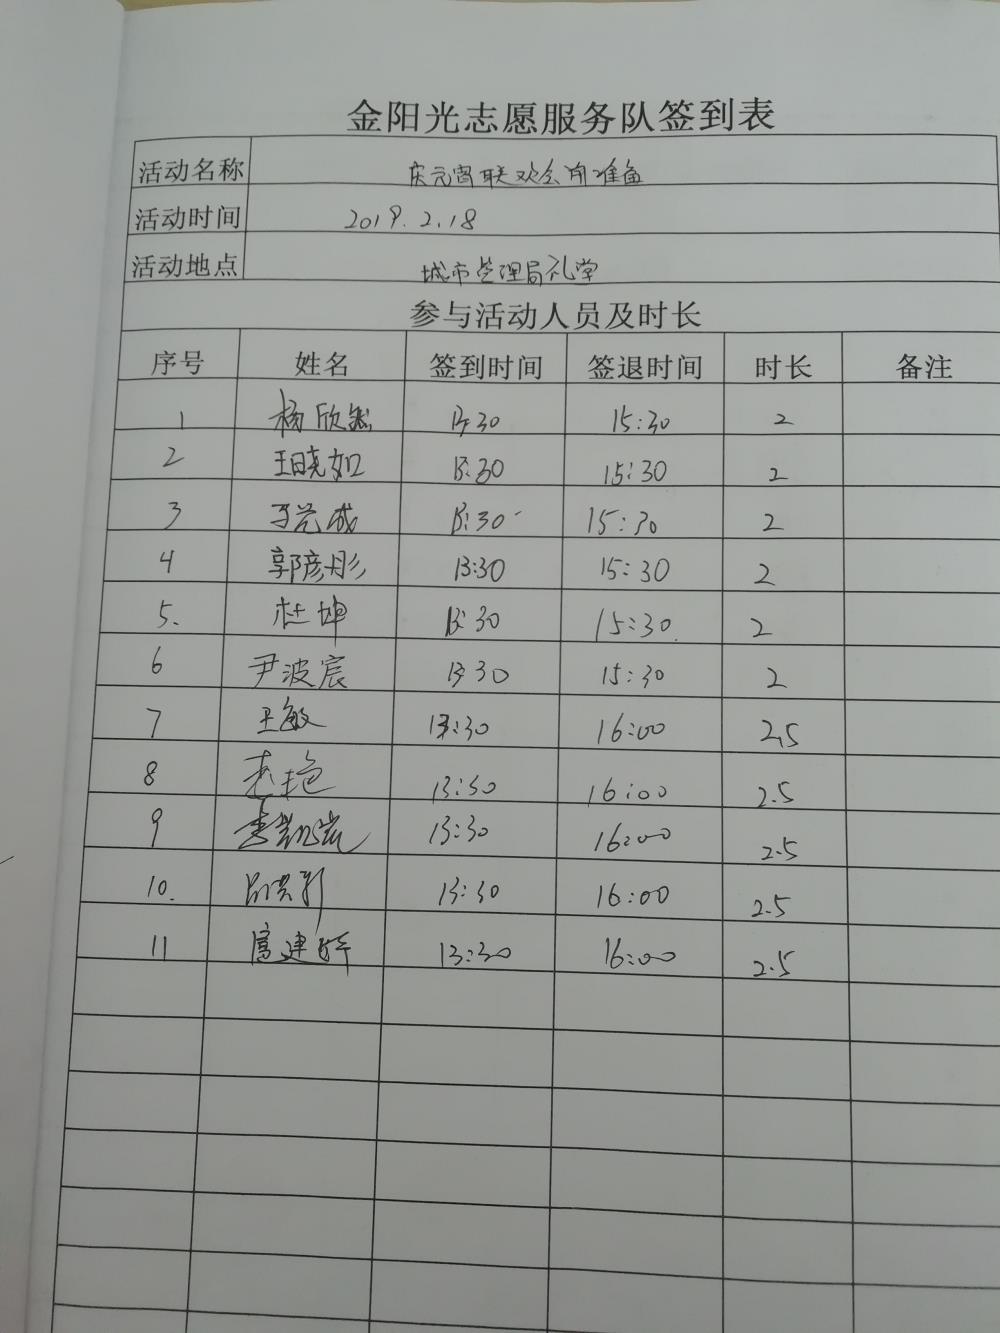 金阳光志愿服务队签到表
活动名称 庆元宵联欢会前准备
活动时间 2019.2.18
活动地点 城市管理局礼堂
参与活动人员及时长
序号 姓名 签到时间 签退时间 时长 备注
1 杨欣 13:30 15:30 2
2 王晓如 13:30 15:30 2
3 成 13:30 15:30 2
4 郭彦彤 13:30 15:30 2
5. 杜坤 13:30 15:30 2
6 尹波宸 13:30 15:30 2
7 王敏 13:30 16:00 2.5
8 艳 13:30 16:00 2.5
9 李凯 13:30 16:00 2.5
10. 13:30 16:00 2.5
11 富建 13:30 16:00 2.5